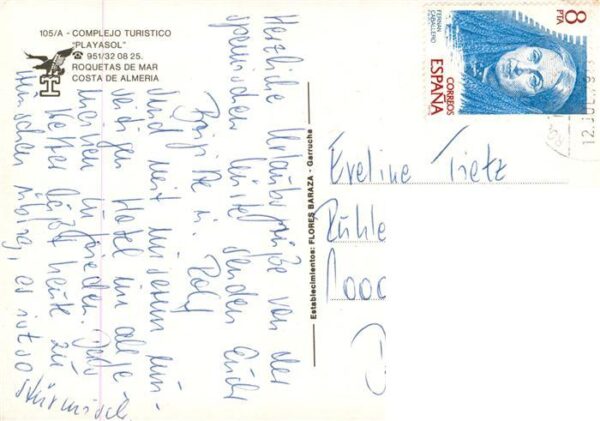 105/A - COMPLEJO TURISTICO
"PLAYASOL"
☎ 951/32 08 25.
ROQUETAS DE MAR
COSTA DE ALMERIA
H
Herzliche Urlaubsgrüße von der
spanischen Küste senden Euch
Brigitte u. Rolf
Sind mit unserem
Hotel im
zufrieden.
Wetter läßt heute zu
wünschen übrig, es ist so
stürmisch
Establecimientos: FLORES BARAZA - Garrucha
8
PTA
FERNAN
CABALLERO
CORREOS
ESPAÑA
12.JUL
Eveline Tietz
Rühle